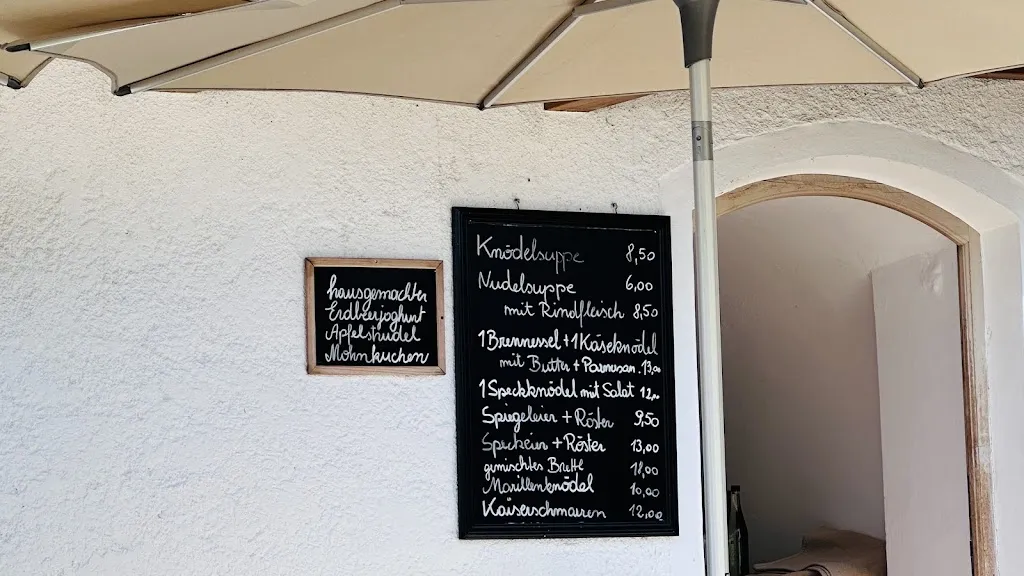 hausgemachter
Erdbeerjoghurt
Apfelstrudel
Mohnkuchen
Knödelsuppe 8,50
Nudelsuppe 6,00
mit Rindfleisch 8,50
1 Brennessel + 1 Käseknödel
mit Butter + Parmesan 13,00
1 Speckknödel mit Salat 12,00
Spiegeleier + Röster 9,50
Speckeier + Röster 13,00
gemischtes Brettl
Marillenknödel 10,00
Kaiserschmarren 12,00